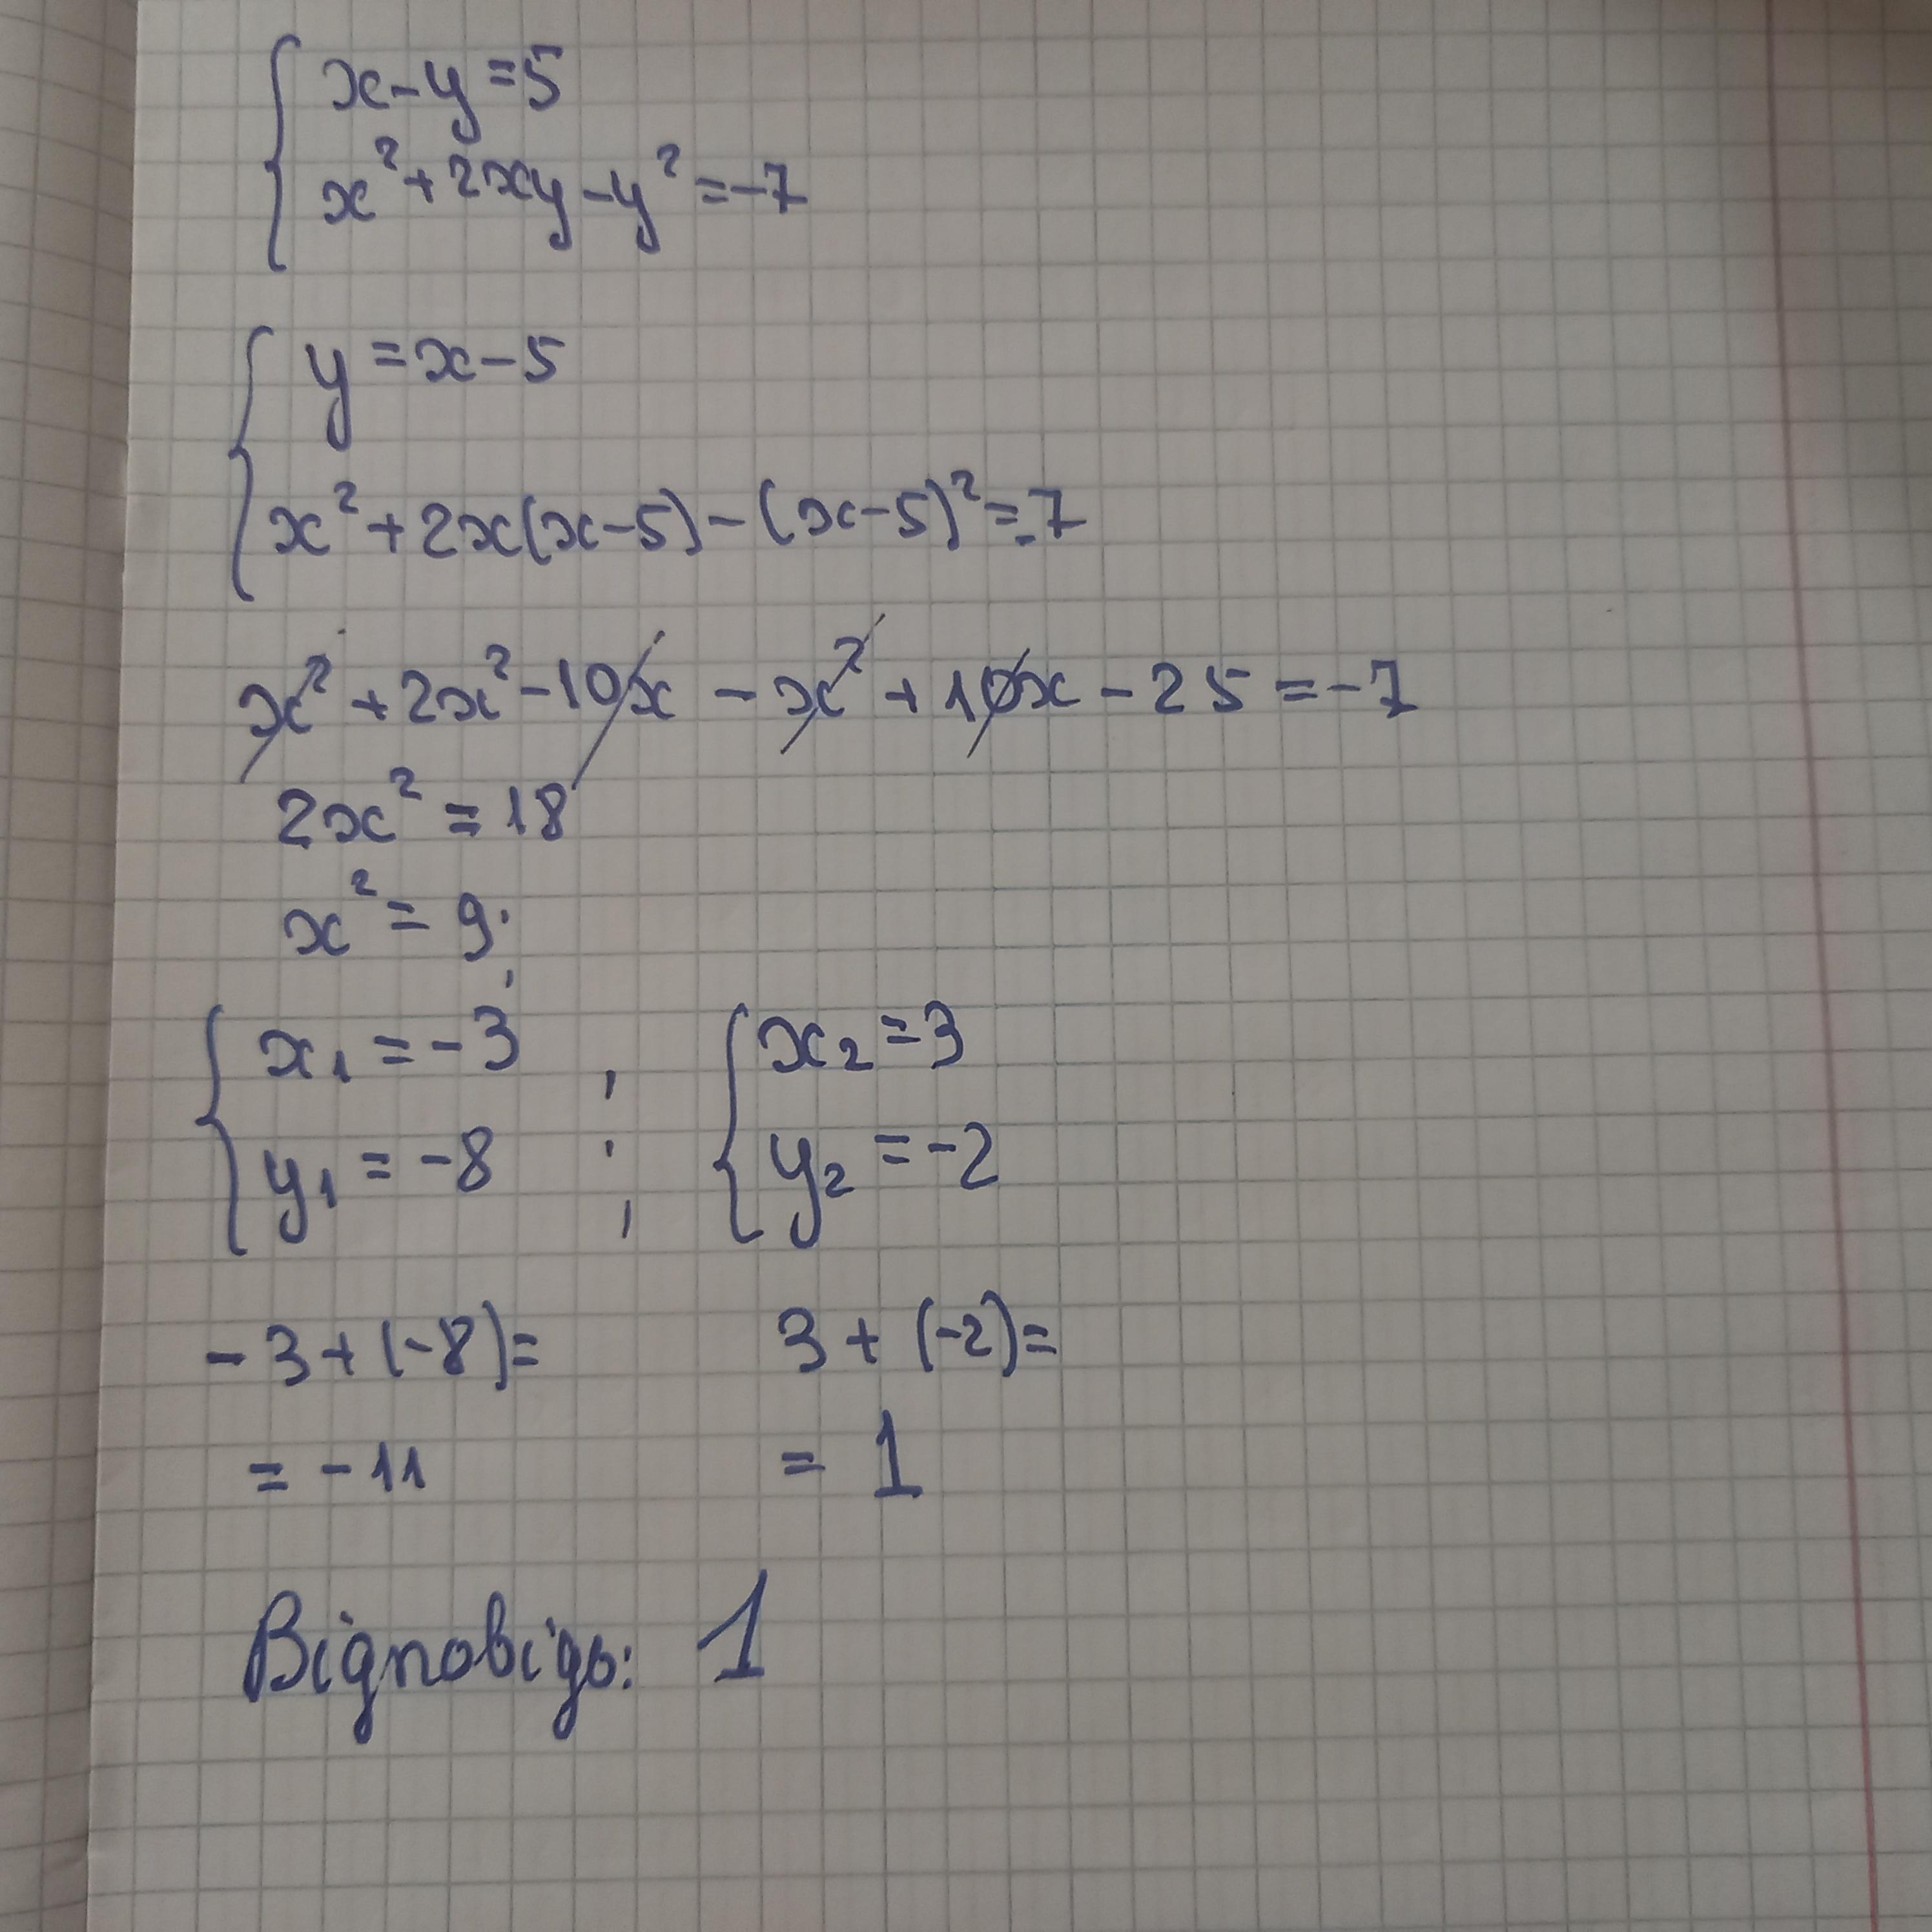 x-y=5
x²+2xy-y²=-7
y=x-5
x²+2x(x-5)-(x-5)²=-7
x²+2x²-10x-x²+10x-25=-7
2x²=18
x²=9
x₁=-3 ; x₂=3
y₁=-8 ; y₂=-2
-3+(-8)= 3+(-2)=
=-11 =1
Відповідь: 1